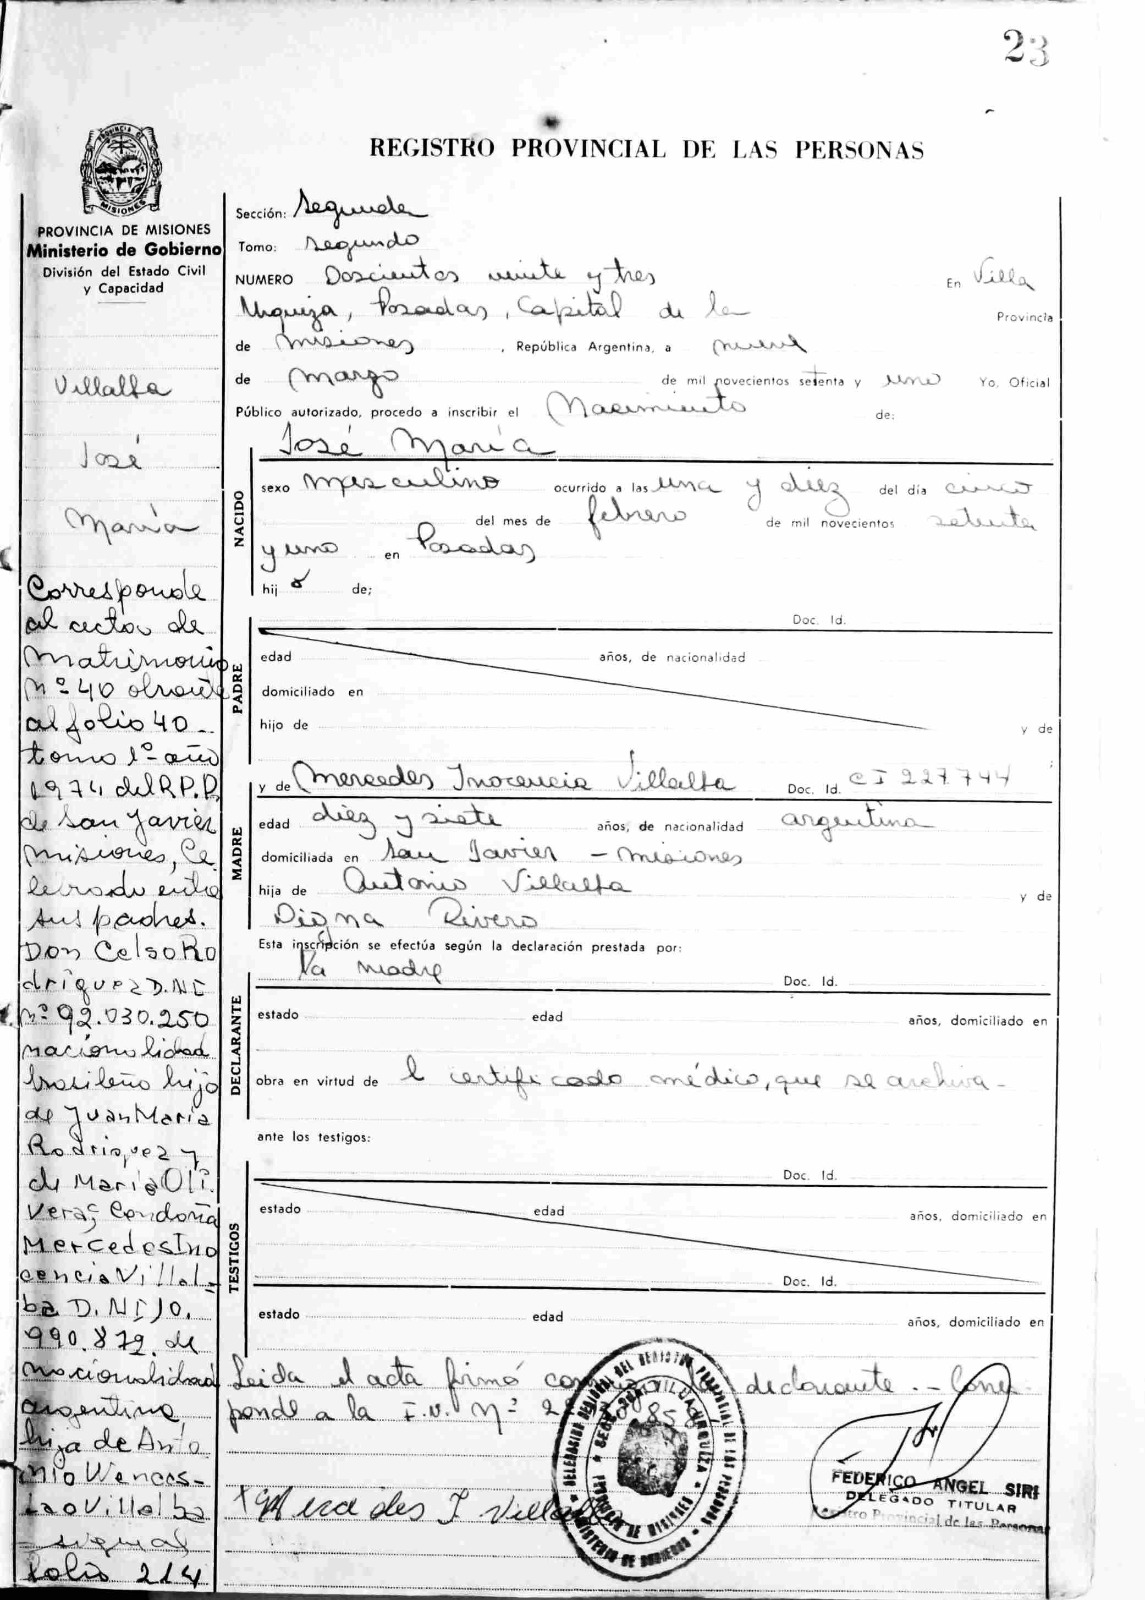 23
REGISTRO PROVINCIAL DE LAS PERSONAS
PROVINCIA DE MISIONES
Ministerio de Gobierno
División del Estado Civil
y Capacidad
Villalba
José
María
Corresponde
al acta de
Matrimonio
Nº 40 obrante
al folio 40
tomo 1º año
1974 del R.P.P.
de San Javier
Misiones, Ce
lebrado entre
sus padres.
Don Celso Ro
dríguez D.NI
nº 92.030.250
nacionalidad
brasileño hijo
de Juan María
Rodríguez y
de María Oli
vera; Con doña
Mercedes Ino
cencia Villal
ba D.NI 10.
990.872. de
nacionalidad
argentina,
hija de Anto
nio Wences-
lao Villalba
sigue al
Folio 214
Sección: Segunda
Tomo: Segundo
NUMERO Doscientos veinte y tres En Villa
Urquiza, Posadas, Capital de la Provincia
de Misiones, República Argentina, a nueve
de Marzo de mil novecientos setenta y uno Yo, Oficial
Público autorizado, procedo a inscribir el Nacimiento de:
José María
NACIDO
sexo Masculino ocurrido a las una y diez del día cinco
del mes de febrero de mil novecientos setenta
y uno en Posadas
hijo de;
Doc. Id.
PADRE
edad años, de nacionalidad
domiciliado en
hijo de y de
y de Mercedes Inocencia Villalba Doc. Id. CI 227744
MADRE
edad diez y siete años, de nacionalidad argentina
domiciliada en San Javier - Misiones
hija de Antonio Villalba y de
Digna Rivero
Esta inscripción se efectúa según la declaración prestada por:
la madre Doc. Id.
DECLARANTE
estado edad años, domiciliado en
obra en virtud de l certificado médico, que se archiva-
ante los testigos:
Doc. Id.
TESTIGOS
estado edad años, domiciliado en
Doc. Id.
estado edad años, domiciliado en
Leida el acta firmó la declarante.- Corres
ponde a la I.U. Nº
Mercedes I Villalba
FEDERICO ANGEL SIRI
DELEGADO TITULAR
Registro Provincial de las Personas